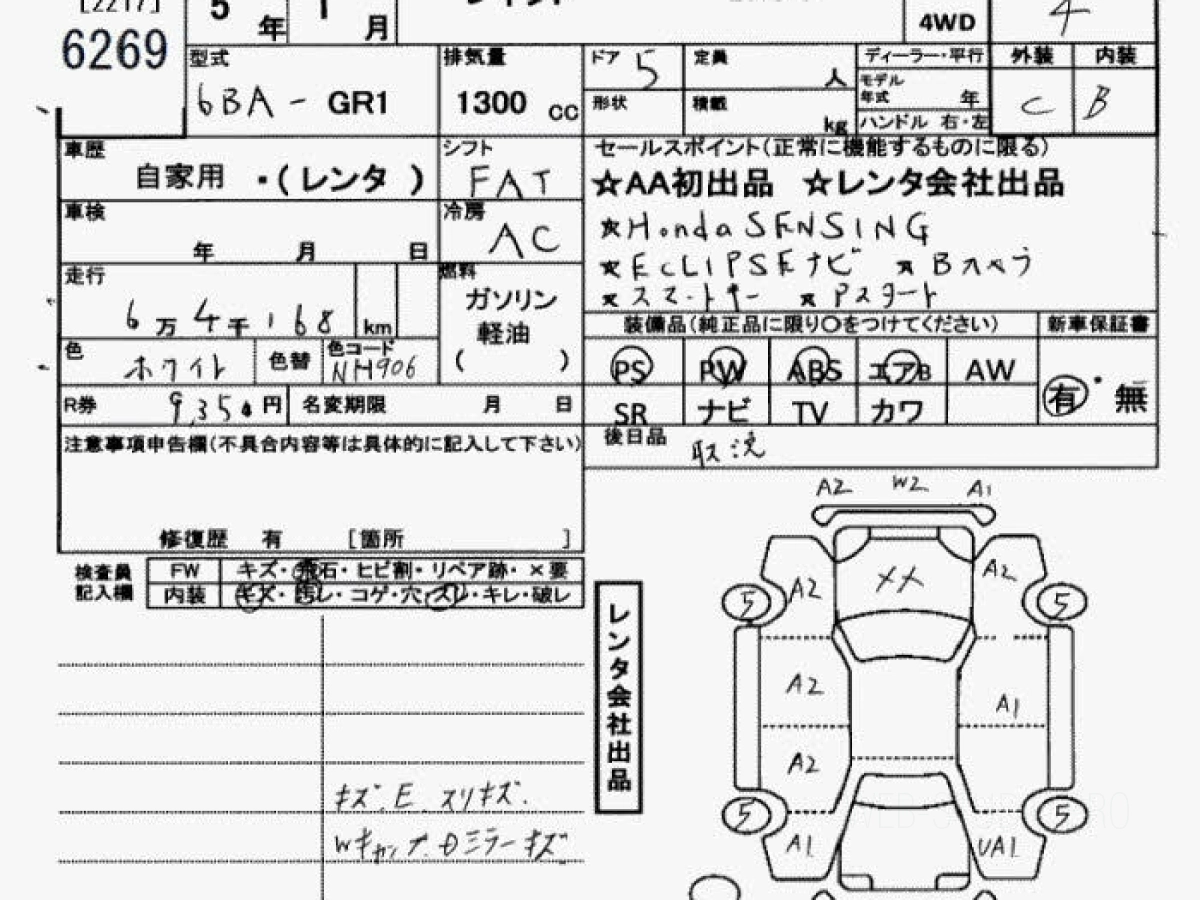 [2217]
6269
5年 1月
4WD
4
型式
6BA - GR1
排気量
1300 cc
ドア 5
定員 人
形状
積載 kg
ディーラー・平行
モデル年式 年
ハンドル 右・左
外装 内装
C B
車歴
自家用 ・(レンタ )
シフト
FAT
車検
年 月 日
冷房
AC
走行
6万4千168 km
燃料
ガソリン
軽油
( )
色
ホワイト
色替
色コード
NH906
R券 9,350円
名変期限 月 日
セールスポイント(正常に機能するものに限る)
☆AA初出品 ☆レンタ会社出品
★Honda SENSING
★ECLIPSEナビ ★Bカメラ
★スマートキー ★Pスタート
装備品(純正品に限り○をつけてください)
新車保証書
PS PW ABS エアB AW
SR ナビ TV カワ
有・無
後日品
取説
注意事項申告欄(不具合内容等は具体的に記入して下さい)
修復歴 有 [箇所 ]
検査員
記入欄
FW キズ・飛石・ヒビ割・リペア跡・×要
内装 キズ・汚レ・コゲ・穴・スレ・キレ・破レ
キズ.E.スリキズ.
Wキャップ.Dミラーキズ
レンタ会社出品
A2 W2 A1
A2 XX A2
5 5
A2 A1
A2
5 5
A1 UA1